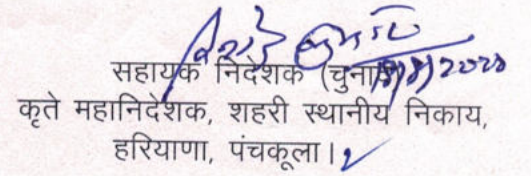 सहायक निदेशक (चुनाव)
कृते महानिदेशक, शहरी स्थानीय निकाय,
हरियाणा, पंचकूला।